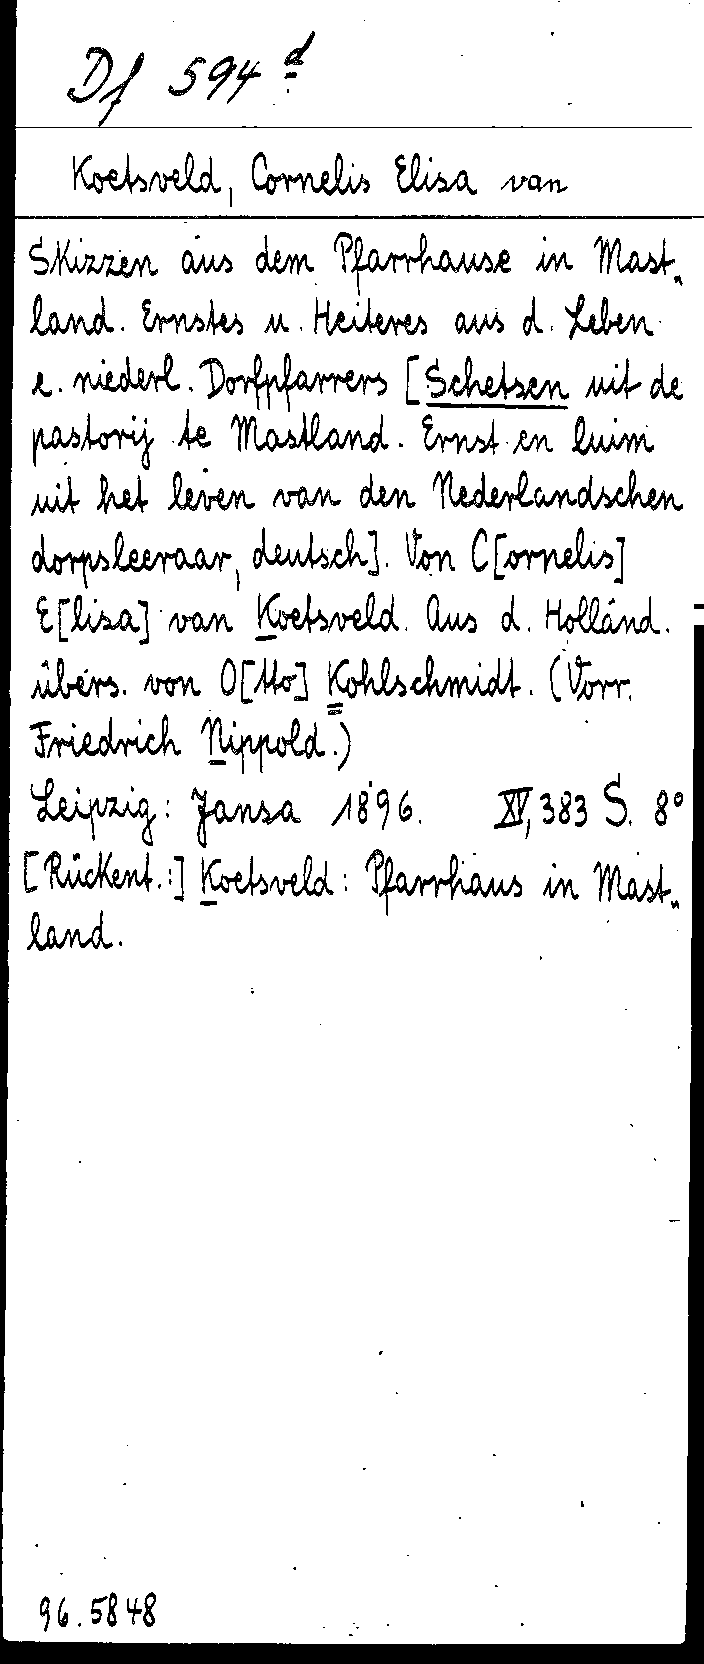 Df 594 d
Koetsveld, Cornelis Elisa van
Skizzen aus dem Pfarrhause in Mast„
land. Ernstes u. Heiteres aus d. Leben
e. niederl. Dorfpfarrers [Schetsen uit de
pastorij te Mastland. Ernst en luim
uit het leven van den Nederlandschen
dorpsleeraar, deutsch]. Von C[ornelis]
E[lisa] van Koetsveld. Aus d. Holländ.
übers. von O[tto] Kohlschmidt. (Vorr.
Friedrich Nippold.)
Leipzig: Jansa 1896. XV, 383 S. 8°
[Rückent.:] Koetsveld: Pfarrhaus in Mast„
land.
96.5848